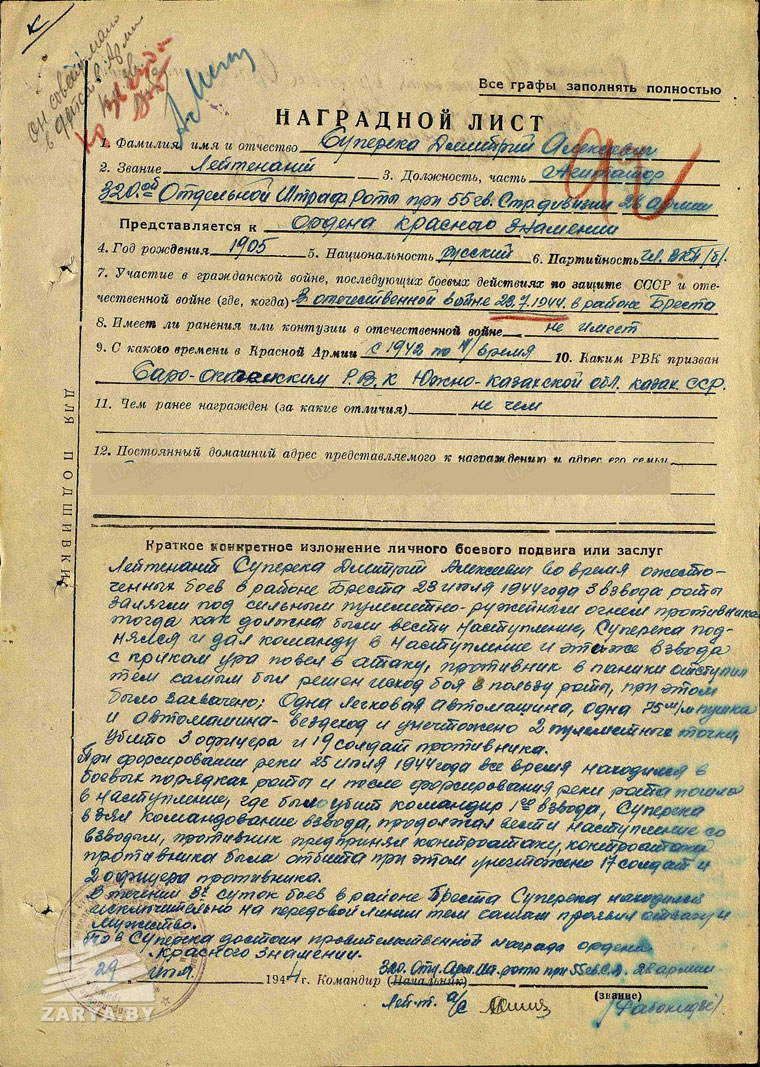 К
Он совет
в
Кр звезда
Все графы заполнять полностью
НАГРАДНОЙ ЛИСТ
1. Фамилия, имя и отчество Суперека Дмитрий Алексеевич
2. Звание Лейтенант 3. Должность, часть Агитатор
320ой Отдельной Штраф Роты при 55 гв. Стр. дивизии 28 армии
Представляется к Ордена Красного Знамении
4. Год рождения 1905 5. Национальность русский 6. Партийность чл. ВКП/б/.
7. Участие в гражданской войне, последующих боевых действиях по защите СССР и оте-
чественной войне (где, когда) В отечественной войне 23.7.1944 в районе Бреста
8. Имеет ли ранения или контузии в отечественной войне не имеет
9. С какого времени в Красной Армии с 1942 по н/время 10. Каким РВК призван
Р.В.К Южно-Казахской обл. казах. ССР.
11. Чем ранее награжден (за какие отличия) не чем
12. Постоянный домашний адрес представляемого к награждению и адрес его семьи
ДЛЯ ПОДШИВКИ
Краткое конкретное изложение личного боевого подвига или заслуг
Лейтенант Суперека Дмитрий Алексеевич во время ожесто-
ченных боев в районе Бреста 23 июля 1944 года 3 взвода роты
залягли под сильным пулеметно-ружейным огнем противника
тогда как должна были вести наступление, Суперека под-
нялся и дал команду в наступление и эти же взвода
с криком ура повел в атаку, противник в паники отступил
тем самым был решен исход боя в пользу роты, при этом
было захвачено; Одна легковая автомашина, одна 75 м/м пушка
и автомашина-вездеход и уничтожено 2 пулеметных точки,
убито 3 офицера и 19 солдат противника.
При форсировании реки 25 июля 1944 года все время находился в
боевых порядках роты и после форсирования реки рота пошла
в наступление, где был убит командир 1го взвода, Суперека
взял командование взвода, продолжал вести наступление со
взводом, противник предпринял контроатаку, контроатака
противника была отбита при этом уничтожено 17 солдат и
2 офицера противника.
В течении 8и суток боев в районе Бреста Суперека находился
исключительно на передовой линии тем самым проявил отвагу и
мужество.
Тов Суперека достоин правительственной награда ордена
Красного Знамении.
29 июл. 1944 г. Командир (Начальник) 320. Отд. Арм. Шт. рота при 55 гв. С.Д. 28 армии
(звание)
Лей-т а/с
ZARYA.BY